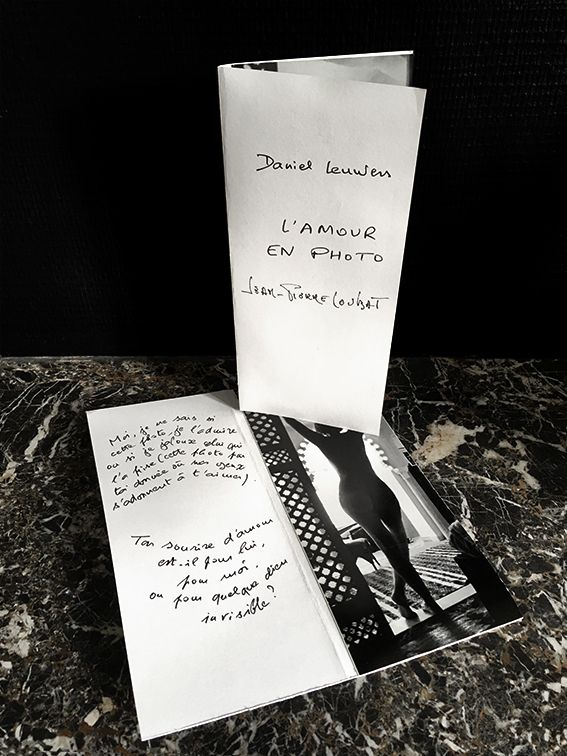 Daniel Leuwers
L'AMOUR
EN PHOTO
JEAN-PIERRE LOUBAT
Moi, je ne sais si
cette photo, je l'admire
ou si je jalouse celui qui
l'a prise (cette photo par
toi donnée où mes yeux
s'adonnent à t'aimer).
Ton sourire d'amour
est-il pour lui,
pour moi,
ou pour quelque dieu
invisible ?